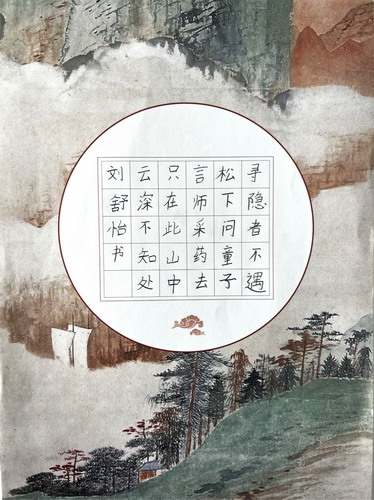 寻隐者不遇
松下问童子
言师采药去
只在此山中
云深不知处
刘舒怡书